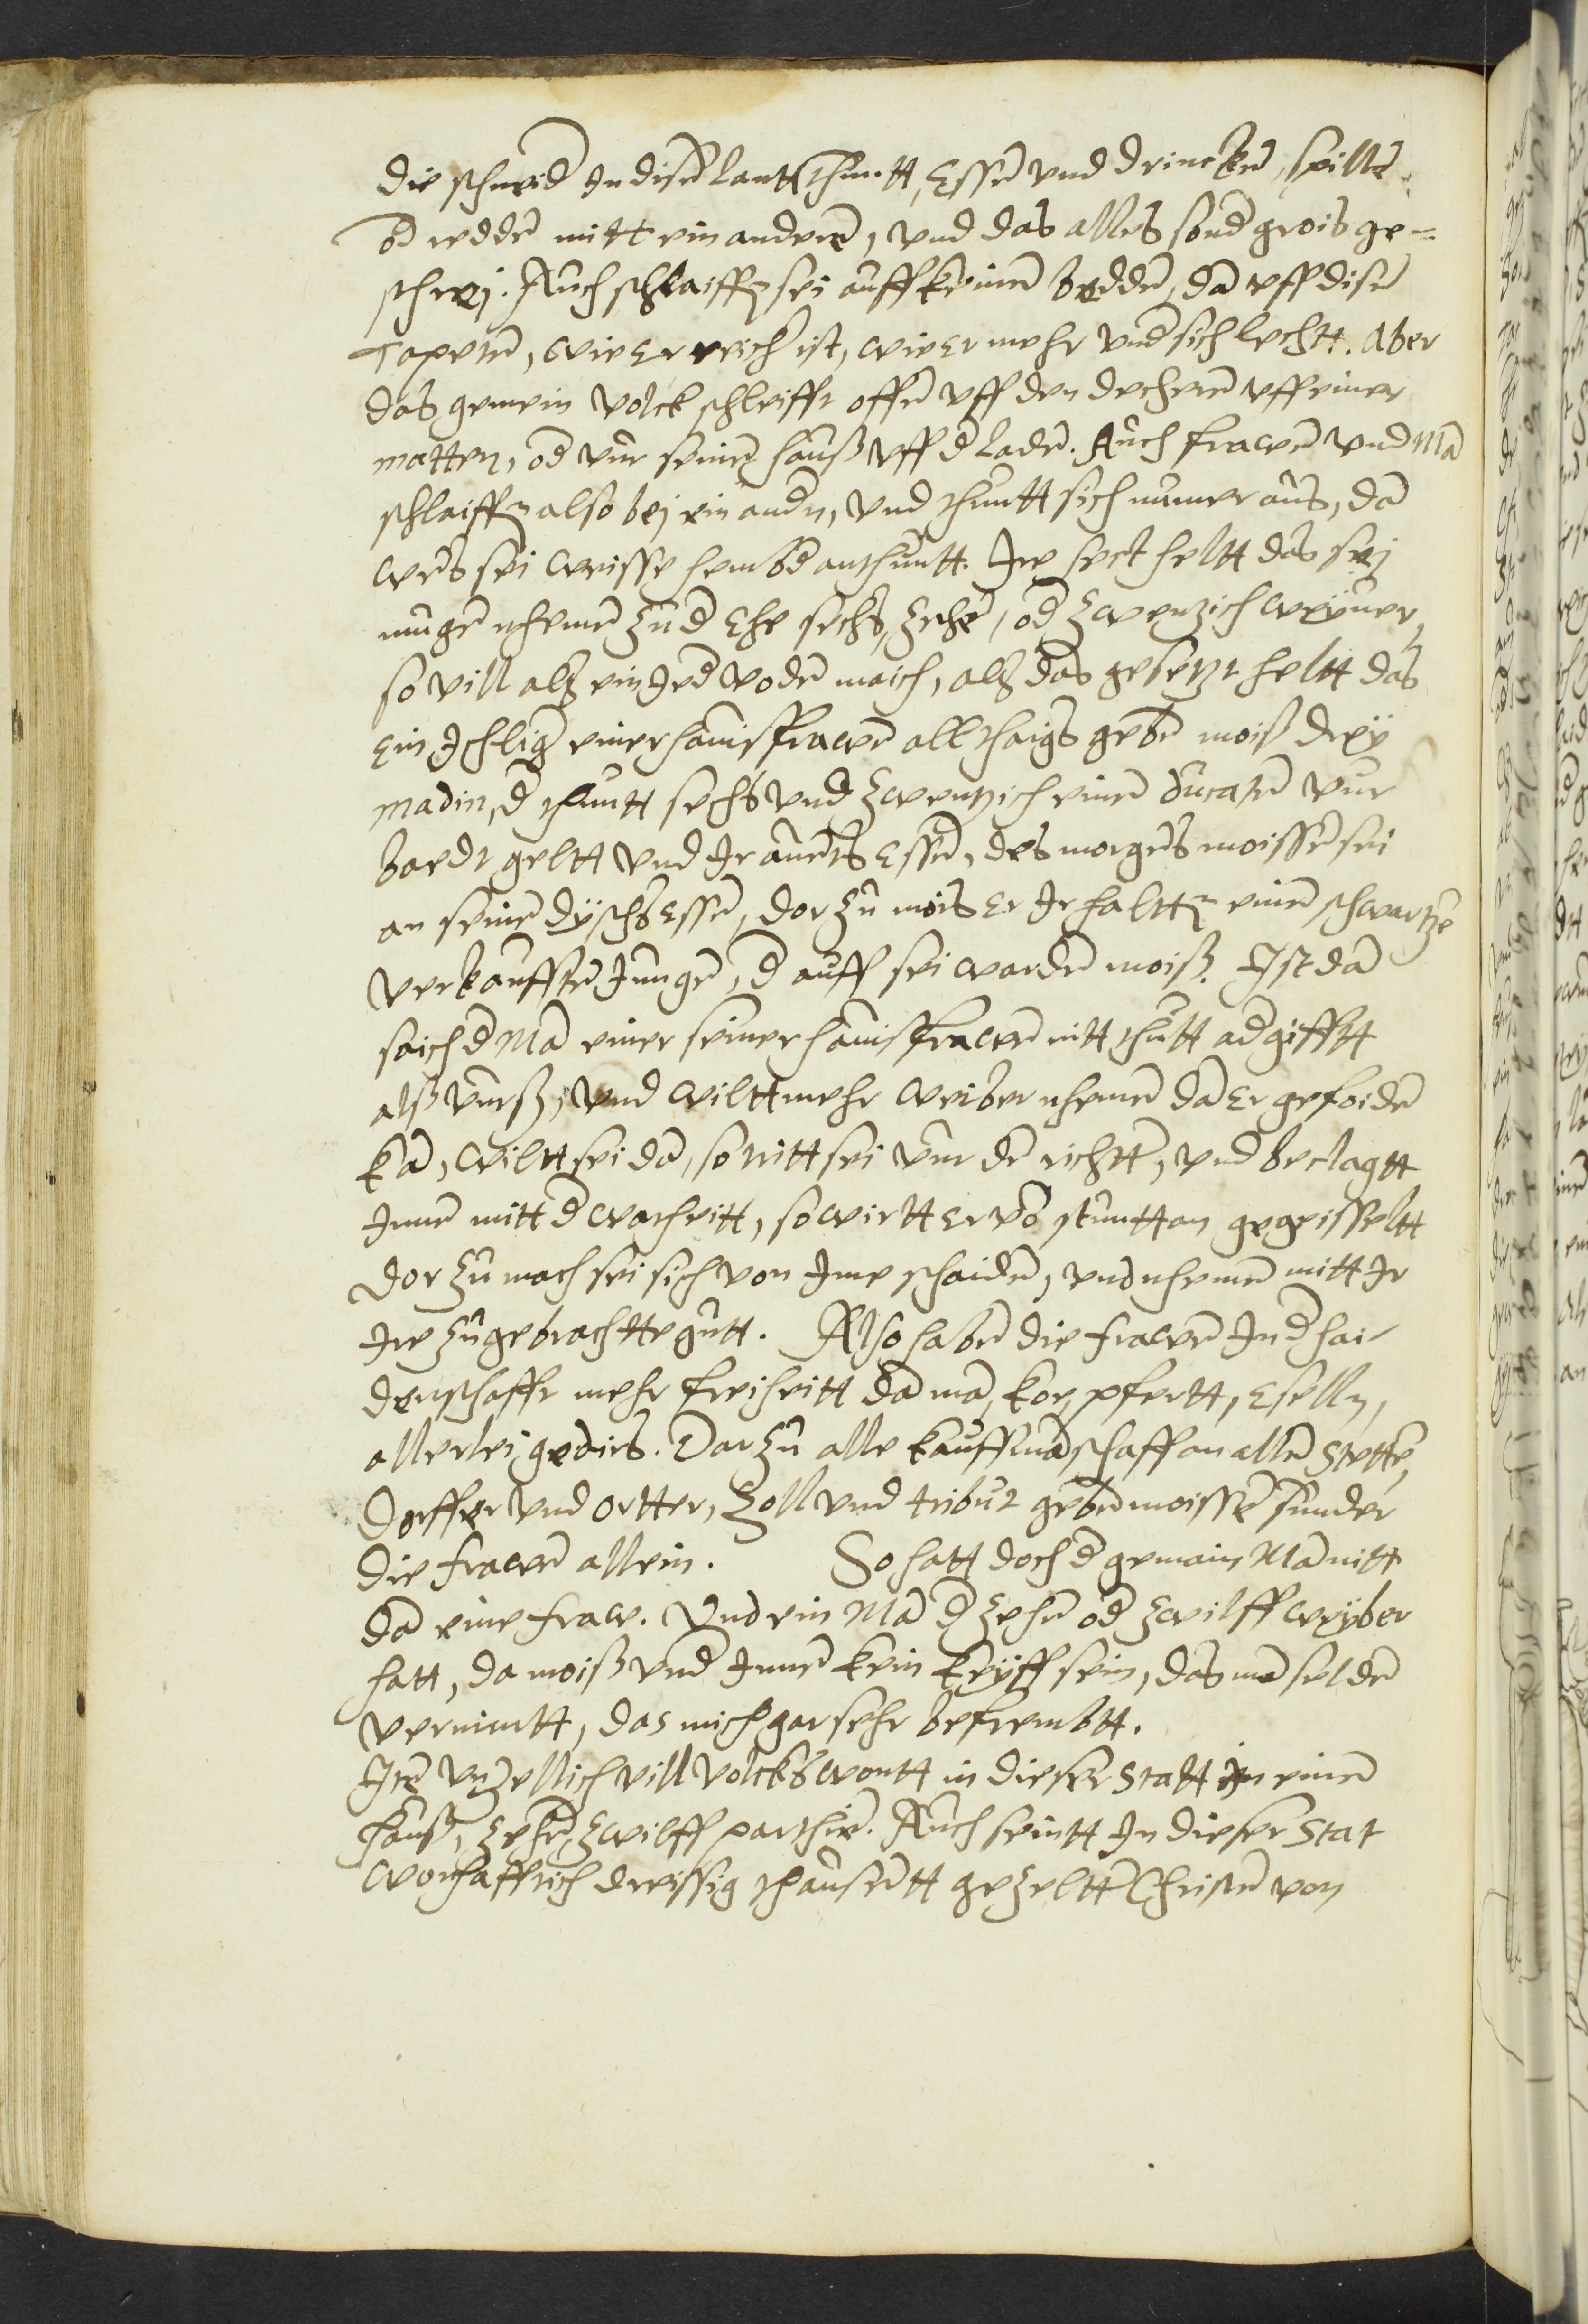 die schneid In disen lantt thuntt, Essen vnd drincken, spillen
od redden mitt ein anderen, vnd das alles sond grois ge-
schrej. Auch schlaiffen sei auff keinen bedden, dan vff disen
Tapeten, wie Er reich ist, wie er mehr vnder sich lechtt. Aber
das gemein volck schleifft offen vff den decheren vff einer
matten, od vur seinen hauß vff d laden. Auch frawen vnd Man
schlaiffen also bej ein andn, vnd thuntt sich numer aus, dan
wens sei weisse hembd anthuntt. Ire sect heltt das sej
mugen nhemen zu d Ehe sechs, zehen, od zwentzich weyuer,
so vill als ein Jed voden maich, als das gesetzt heltt das
Ein Ichlig einer hauisfrawen all thaigs geben moiß drey
madin, d thuntt sechs vnd zwentzich einen ducaten vur
baedt geltt vnd Ir auents Essen, des morgens moissen sei
an seinen dyschs essen, dor zu mois Er Ir haltten einen schwartzen
verkaufften Jungen, d auff sei warden moiß. Ist dan
saich d Man einer seiner hauisfrawen nitt thutt ad gifftt
alß vurß, vnd wiltt mehr weiber nhemen dan er gefoiden
kan, wiltt sei dan, so tritt sei vur den richtt, vnd beclagtt
Innen mitt d warheitt, so wirtt er von stuntt an gegeisseltt
dor zu mach sei sich von Ime schaiden, vnd nhemen mitt Ir
Ire zugebrachtte gutt. Also haben die frawen In d hai-
denschafft mehr freiheitt dan man, koe, pfertt, Eselln,
allerlei gediers. Dar zu alle kauffmanschaff an allen Stetten,
dorffer vnd ortter, zoll vnd tribut geben moissen sunder
die frawen allein. So hatt doch d gemain Man nitt
dan eine fraw. Vnd ein Man d zehen od zwilff weyber
hatt, da moiß vnd Innen kein keyff sein, das man selden
vernimtt, das mich gar sehr befrembtt.
Item vnzellich vill volcks wontt in dieser statt in einen
hauß, zehen, zwilff parthien. Auch seintt In dieser Stat
wonhafftich dreissig thausentt gezeltten Christen von